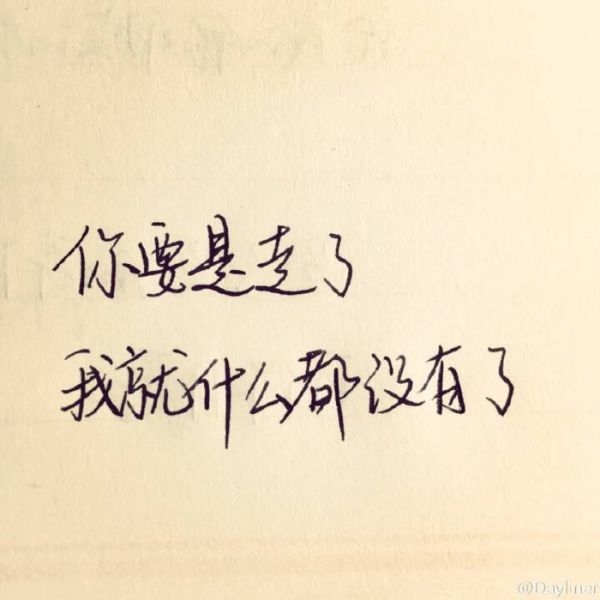 你要是走了
我就什么都没有了
@Dayliner